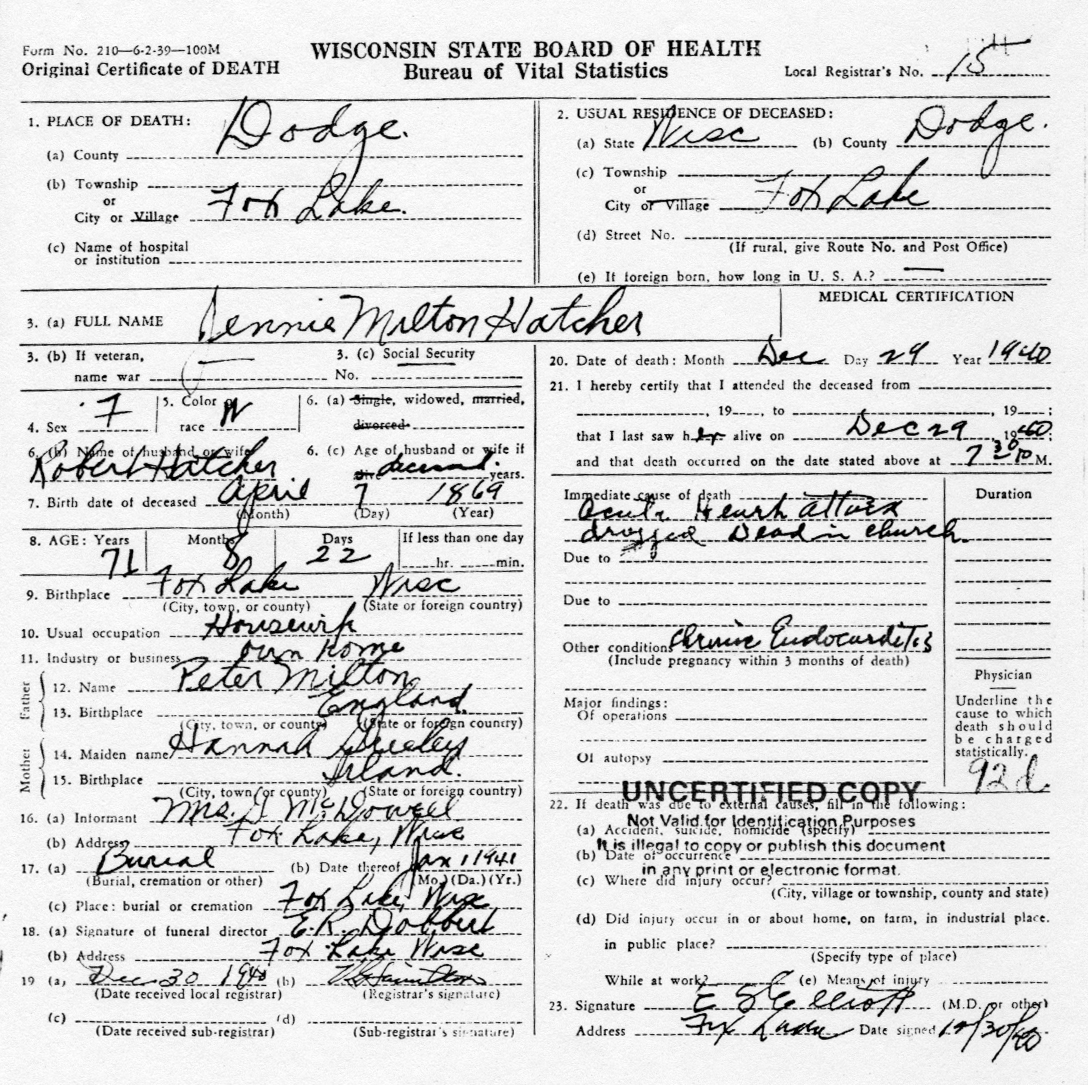 Form No. 210—6-2-39—100M
Original Certificate of DEATH
WISCONSIN STATE BOARD OF HEALTH
Bureau of Vital Statistics
Local Registrar's No. 15
1. PLACE OF DEATH:
(a) County Dodge.
(b) Township
or
City or Village Fox Lake.
(c) Name of hospital
or institution
2. USUAL RESIDENCE OF DECEASED:
(a) State Wisc (b) County Dodge.
(c) Township
or
City or Village Fox Lake
(d) Street No.
(If rural, give Route No. and Post Office)
(e) If foreign born, how long in U. S. A.? —
3. (a) FULL NAME Jennie Milton Hatcher
MEDICAL CERTIFICATION
3. (b) If veteran,
name war
3. (c) Social Security
No.
4. Sex F
5. Color or
race W
6. (a) Single, widowed, married,
divorced
6. (b) Name of husband or wife
Robert Hatcher
6. (c) Age of husband or wife if
alive deceased. years.
7. Birth date of deceased April 7 1869
(Month) (Day) (Year)
8. AGE: Years Months Days If less than one day
71 8 22 hr. min.
9. Birthplace Fox Lake Wisc
(City, town, or county) (State or foreign country)
10. Usual occupation Housewife
11. Industry or business own home
Father
12. Name Peter Milton
13. Birthplace England
(City, town, or county) (State or foreign country)
Mother
14. Maiden name Hannah
15. Birthplace Irland.
(City, town, or county) (State or foreign country)
16. (a) Informant Mrs. J McDowell
(b) Address Fox Lake, Wisc
17. (a) Burial (b) Date thereof Jan 1 1941
(Burial, cremation or other) (Mo.) (Da.) (Yr.)
(c) Place: burial or cremation Fox Lake, Wisc
18. (a) Signature of funeral director E.R. Dobbert
(b) Address Fox Lake Wisc
19 (a) Dec 30 1940 (b)
(Date received local registrar) (Registrar's signature)
(c) (d)
(Date received sub-registrar) (Sub-registrar's signature)
20. Date of death: Month Dec Day 29 Year 1940
21. I hereby certify that I attended the deceased from
, 19 , to , 19 ;
that I last saw her alive on Dec 29, 1940;
and that death occurred on the date stated above at 7 30 P M.
Immediate cause of death
Acute Heart attack
dropped Dead in church
Due to
Due to
Other conditions Chronic Endocarditis
(Include pregnancy within 3 months of death)
Major findings:
Of operations
Of autopsy
Duration
Physician
Underline the
cause to which
death should
be charged
statistically.
92d
UNCERTIFIED COPY
22. If death was due to external causes, fill in the following:
Not Valid for Identification Purposes
(a) Accident, suicide, homicide (specify)
It is illegal to copy or publish this document
(b) Date of occurrence
in any print or electronic format.
(c) Where did injury occur?
(City, village or township, county and state)
(d) Did injury occur in or about home, on farm, in industrial place,
in public place?
(Specify type of place)
While at work? (e) Means of injury
23. Signature E S Elliott (M.D. or other)
Address Fox Lake Date signed 12/30/40